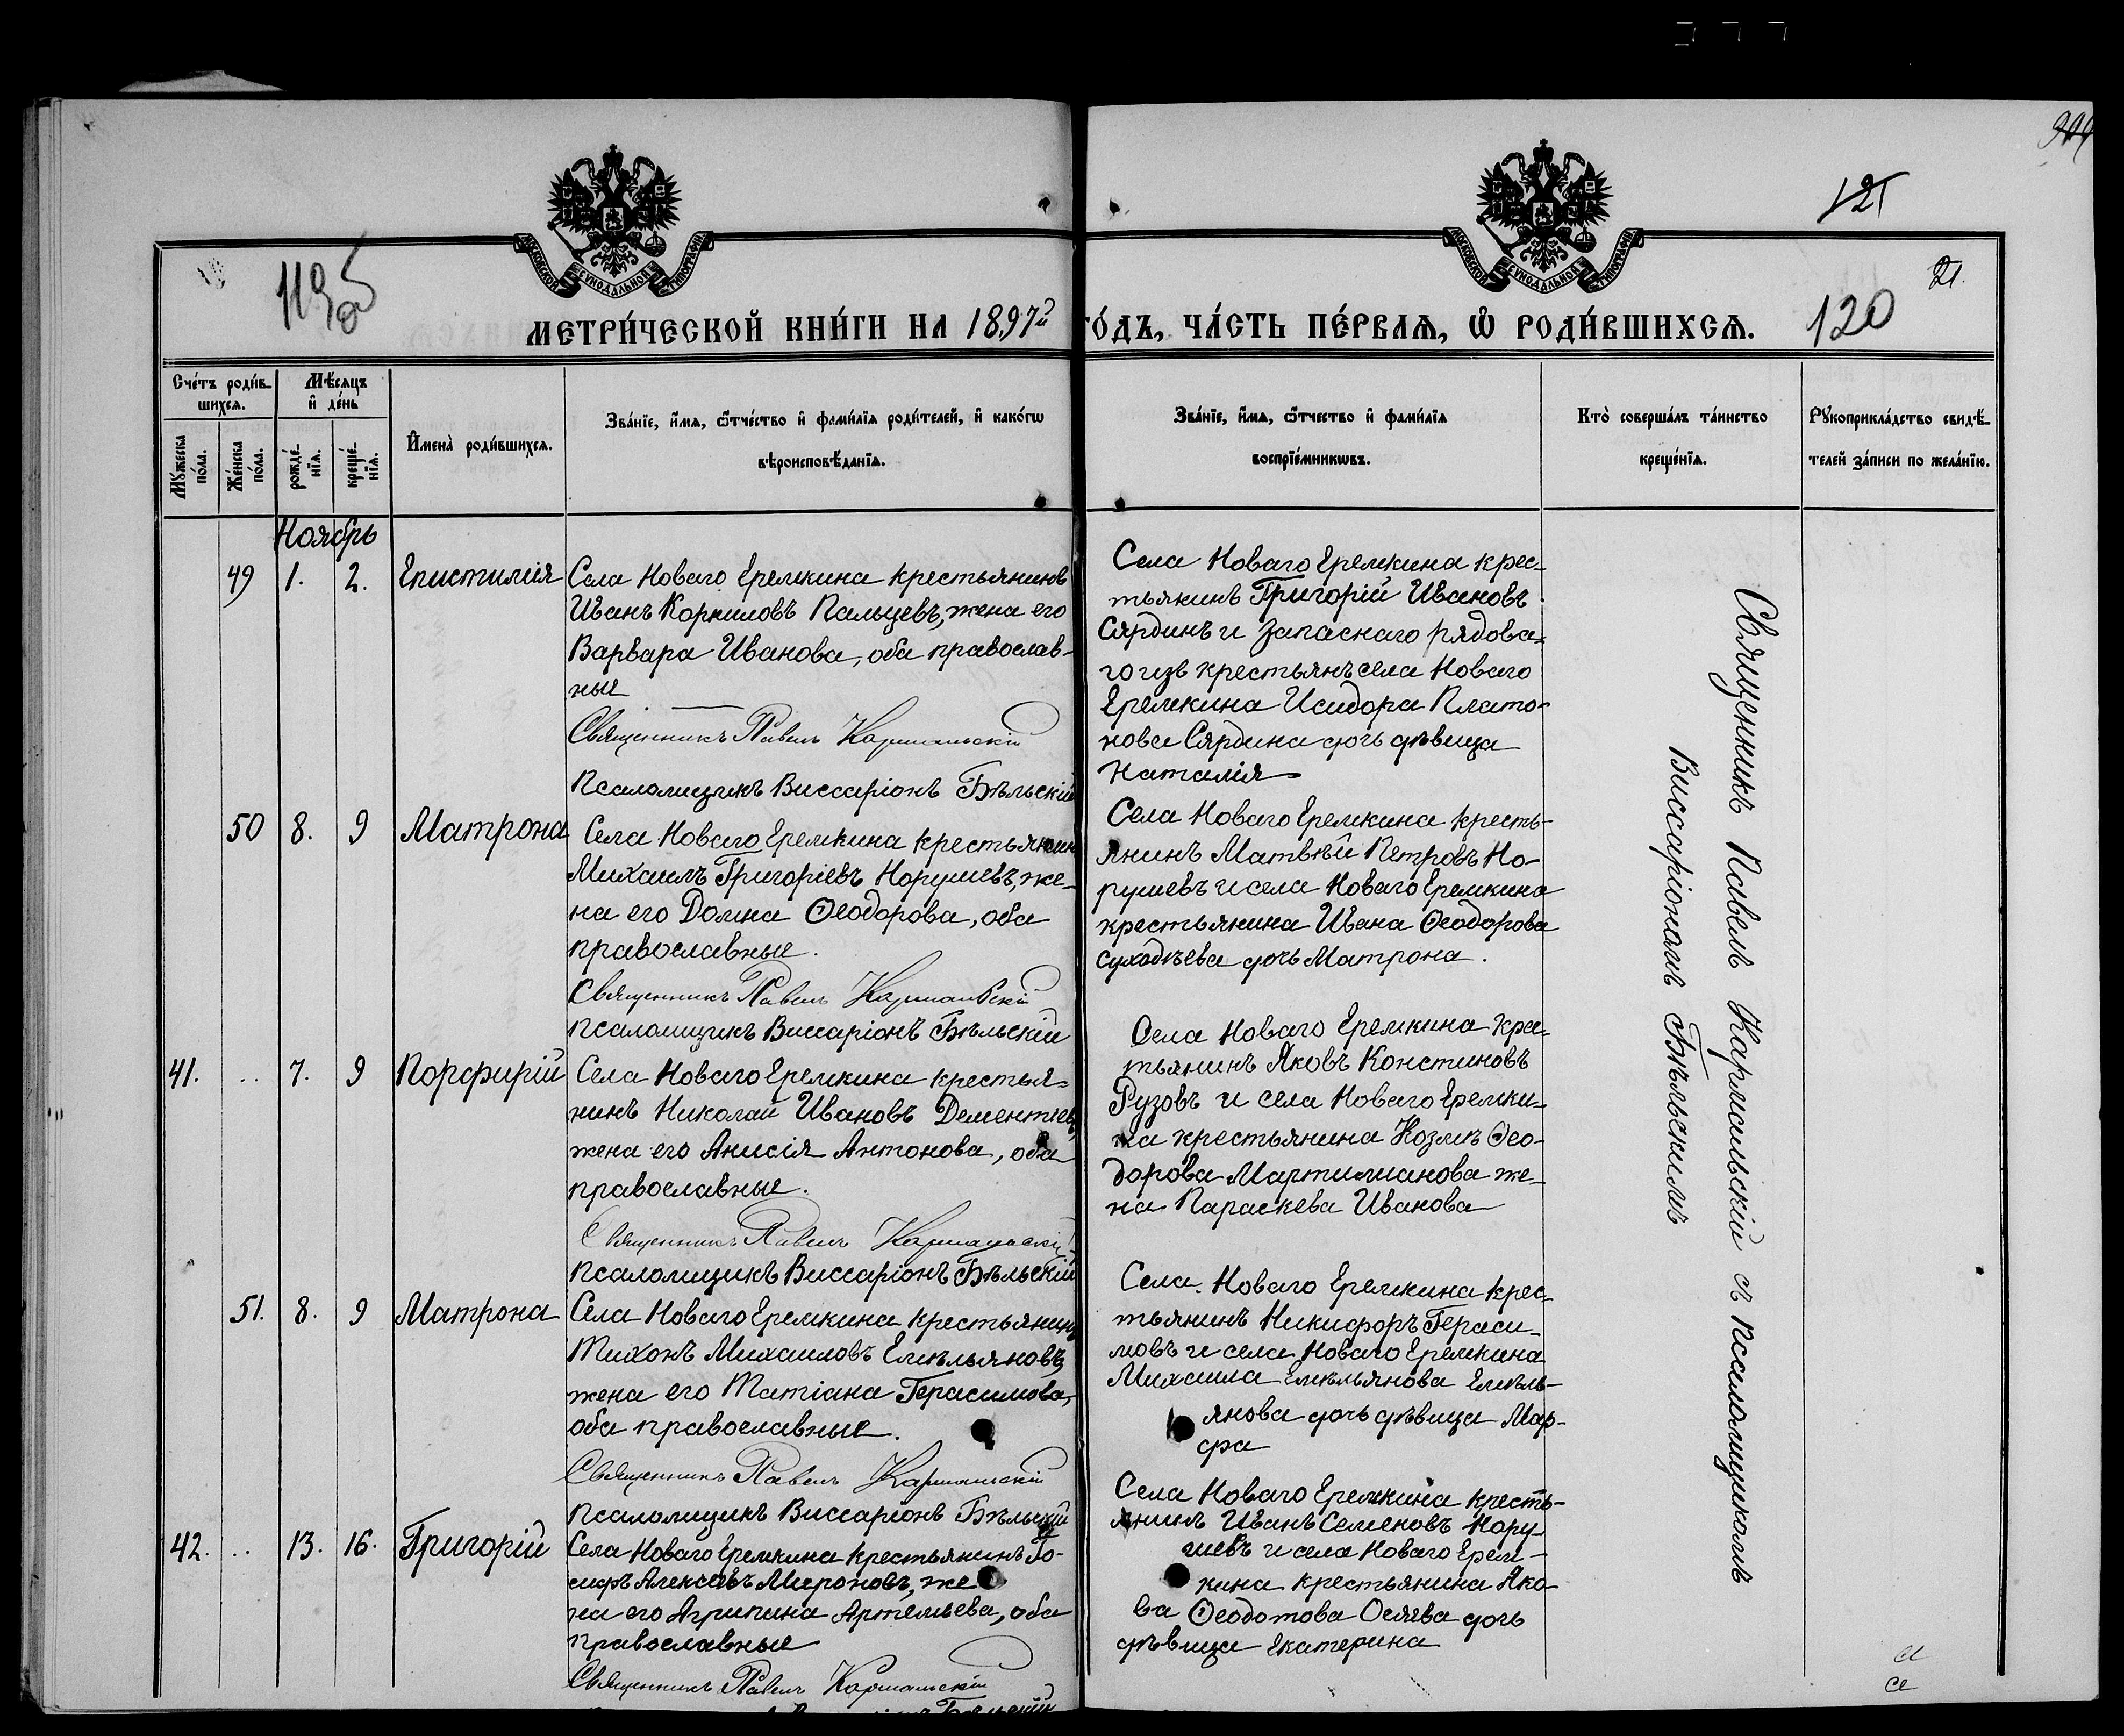 121
21.
119об
120
МОСКОВСКОЙ СѴНОДАЛЬНОЙ ТИПОГРАФІИ
МОСКОВСКОЙ СѴНОДАЛЬНОЙ ТИПОГРАФІИ
МЕТРИ́ЧЕСКОЙ КНИ́ГИ НА 1897й ГО́ДЪ, ЧА́СТЬ ПЕ́РВАѦ, Ѽ РОДИ́ВШИХСѦ.
Сче́тъ роди́в-
шихсѧ.
Мꙋ́жеска
по́ла.
Же́нска
по́ла.
Мѣ́сѧцъ
и҆ де́нь
рожде́-
нїѧ.
креще́-
нїѧ.
И҆мена̀ роди́вшихсѧ.
Зва́нїе, и҆́мѧ, ѻ҆́тчество и҆ фами́лїѧ роди́телей, и҆ како́гѡ
вѣроисповѣ́данїѧ.
Зва́нїе, и҆́мѧ, ѻ҆́тчество и҆ фами́лїѧ
воспрїе́мникѡвъ.
Кто̀ соверша́лъ та́инство
креще́нїѧ.
Рꙋкоприкла́дство свидѣ́-
телей за́писи по жела́нїю.
Ноябрь
49 1. 2. Епистимія
Села Новаго Еремкина крестьянинъ
Иванъ Корниловъ Пальцевъ, жена его
Варвара Иванова, оба православ-
ные
Священникъ Павелъ Кармальскій
Псаломщикъ Виссаріонъ Бѣльскій
Села Новаго Еремкина крес-
тьянинъ Григорій Ивановъ
Сярдинъ и запаснаго рядова-
го изъ крестьянъ села Новаго
Еремкина Исидора Плато-
нова Сярдина дочь дѣвица
Наталія
50 8. 9 Матрона
Села Новаго Еремкина крестьянин
Михаилъ Григоріевъ Норушевъ, же-
на его Домна Ѳеодорова, оба
православные.
Священникъ Павелъ Кармальскій
Псаломщикъ Виссаріонъ Бѣльскій
Села Новаго Еремкина кресть-
янинъ Матвѣй Петровъ Но-
рушевъ и села Новаго Еремкина
крестьянина Ивана Ѳеодорова
Суходѣева дочь Матрона.
41. .. 7. 9 Порфирій
Села Новаго Еремкина крестья-
нинъ Николай Ивановъ Дементіевъ,
жена его Анисія Антонова, оба
православные.
Священникъ Павелъ Кармальскій
Псаломщикъ Виссаріонъ Бѣльскій
Села Новаго Еремкина кре-
тьянинъ Яковъ Констиновъ
Рузовъ и села Новаго Еремки-
на крестьянина Козмы Ѳео-
дорова Мартимианова же-
на Параскева Иванова
51. 8. 9 Матрона
Села Новаго Еремкина крестьянинъ
Тихонъ Михаиловъ Емельяновъ,
жена его Татіана Герасимова,
оба православные.
Священникъ Павелъ Кармальскій
Псаломщикъ Виссаріонъ Бѣльскій
Села Новаго Еремкина крес-
тьянинъ Никифоръ Гераси-
мовъ и села Новаго Еремкина
Михаила Емельянова Емель-
янова дочь дѣвица Мар-
фа
42. .. 13. 16. Григорій
Села Новаго Еремкина крестьянинъ Іо-
сифъ Алексѣевъ Мироновъ, же
на его Агрипина Артемьева, оба
православные
Священникъ Павелъ Кармальскій
Села Новаго Еремкина кресть-
янинъ Иванъ Семеновъ Нору-
шевъ и села Новаго Ерем-
кина крестьянина Яко-
ва Ѳеодотова Осяева дочь
дѣвица Екатерина
Священникъ Павелъ Кармальскій съ псаломщикомъ
Виссаріономъ Бѣльскимъ